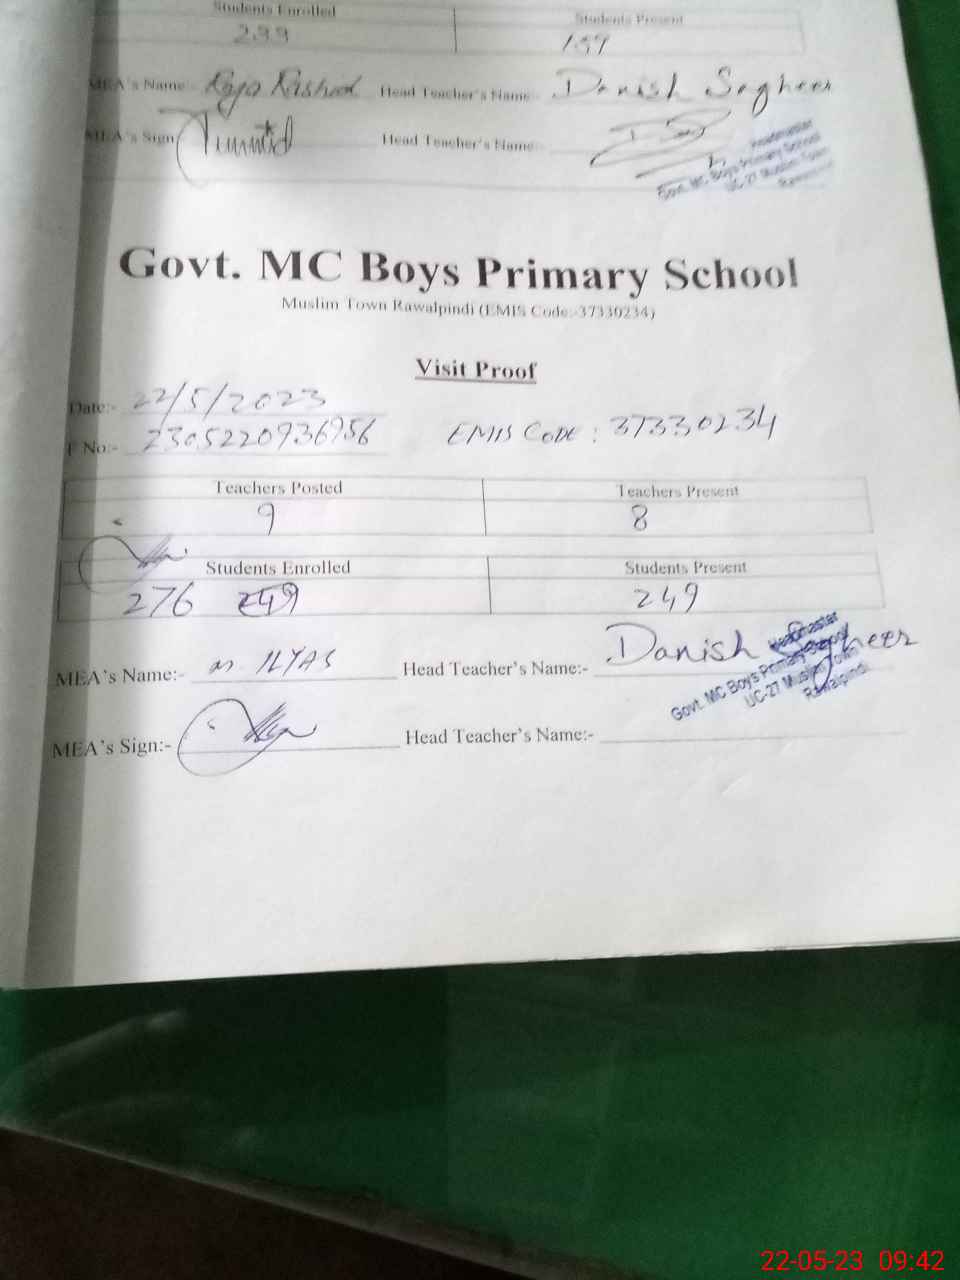 Students Enrolled Students Present
299 159
MEA's Name:- Raja Rashid Head Teacher's Name:- Danish Sagheer
MEA's Sign Head Teacher's Name:-
Headmaster
Govt. MC Boys Primary School
UC-27 Muslim Town
Rawalpindi
Govt. MC Boys Primary School
Muslim Town Rawalpindi (EMIS Code:-37330234)
Visit Proof
Date:- 22/5/2023
F No:- 2305220936956 EMIS CODE : 37330234
Teachers Posted Teachers Present
9 8
Students Enrolled Students Present
276 249 249
MEA's Name:- M. ILYAS Head Teacher's Name:- Danish Sagheer
Headmaster
Govt. MC Boys Primary School
UC-27 Muslim Town
Rawalpindi
MEA's Sign:- Head Teacher's Name:-
22-05-23 09:42